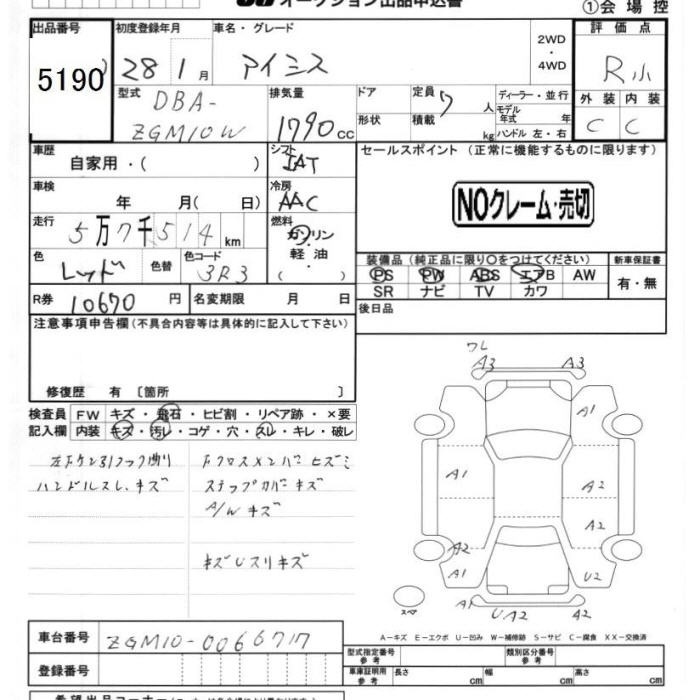 オークション出品申込書
①会場控
出品番号
5190
初度登録年月
28 1月
車名・グレード
アイシス
2WD
・
4WD
評価点
R小
型式
DBA-
ZGM10W
排気量
1790cc
ドア
形状
定員
7人
積載
kg
ディーラー・並行
モデル
年式 年
ハンドル 左・右
外装 内装
C C
車歴
自家用・( )
シフト
IAT
セールスポイント (正常に機能するものに限ります)
NOクレーム・売切
車検
年 月( 日)
冷房
AAC
走行
5万7千514km
燃料
ガソリン
軽油
( )
色
レッド
色替
色コード
3R3
装備品(純正品に限り○をつけてください)
PS PW ABS エアB AW
SR ナビ TV カワ
新車保証書
有・無
R券
10670円
名変期限 月 日
後日品
注意事項申告欄(不具合内容等は具体的に記入して下さい)
修復歴 有 〔箇所 〕
検査員
記入欄
FW キズ・飛石・ヒビ割・リペア跡・×要
内装 キズ・汚レ・コゲ・穴・スレ・キレ・破レ
ハンドルスレ、キズ
Fクロスメンバーヒズミ
ステップカバーキズ
A/Wキズ
キズUスリキズ
ワレ
A3 A3
A1
A1
A2
A2
A2
A1
U2
スペア
A1 UA2 A2
A-キズ E-エクボ U-凹み W-補修跡 S-サビ C-腐食 XX-交換済
車台番号
ZGM10-0066717
登録番号
型式指定番号
参考
類別区分番号
参考
車庫証明用
参考
長さ cm
幅 cm
高さ cm